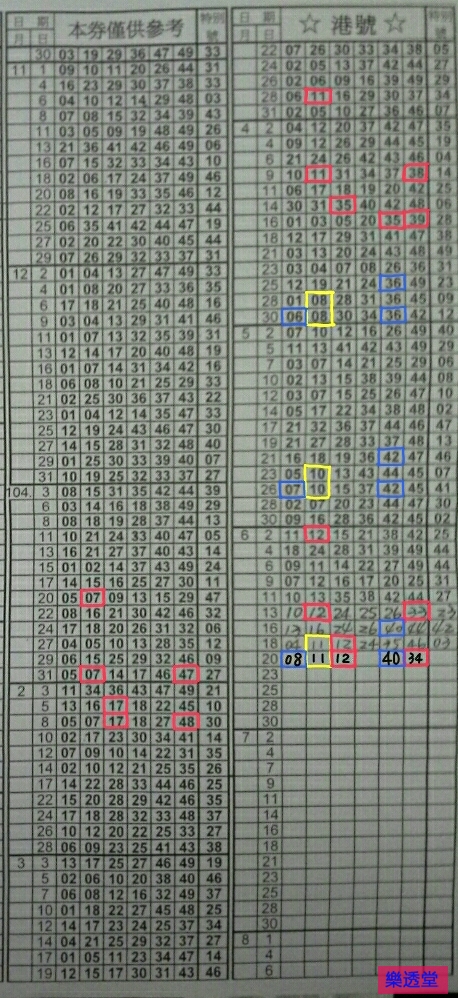 日期 本券僅供參考 特別號
月 日
30 03 19 29 36 47 49 33
11 1 09 10 11 20 26 44 31
4 16 23 29 30 37 38 33
6 04 10 12 14 29 48 03
8 07 08 15 32 34 39 43
11 03 05 09 19 48 49 26
13 21 36 41 42 46 49 06
16 07 15 32 33 34 43 10
18 02 06 17 24 37 49 46
20 08 16 19 33 35 46 12
22 02 12 17 27 32 33 44
25 06 35 41 42 44 47 19
27 02 20 22 30 40 45 44
29 07 26 29 32 33 37 31
12 2 01 04 13 27 47 49 33
4 01 08 20 27 33 36 35
6 17 18 21 25 40 48 16
9 03 04 13 29 31 41 46
11 01 07 13 32 35 39 31
13 12 14 17 20 40 48 19
16 01 07 14 31 34 42 16
18 06 08 10 21 25 29 33
21 02 25 30 36 37 43 22
23 01 04 12 14 35 47 33
25 12 19 24 43 46 47 30
27 14 15 28 31 32 48 40
29 01 25 30 33 39 40 07
31 10 19 25 32 33 37 27
104. 3 08 15 31 35 42 44 39
6 03 14 16 18 38 49 29
8 08 18 19 28 37 44 13
11 10 21 24 33 40 47 05
13 16 21 27 37 40 43 14
15 01 02 14 37 43 49 24
17 14 15 16 25 27 30 11
20 05 07 09 13 15 29 47
22 08 16 21 30 42 46 32
24 17 18 20 26 31 32 06
27 04 05 10 13 28 35 12
29 06 15 25 29 32 46 09
31 05 07 14 17 46 47 27
2 3 11 34 36 43 47 49 21
5 13 16 17 18 22 45 10
8 05 07 17 18 27 48 30
10 02 17 23 30 34 41 14
12 07 09 10 14 22 31 35
14 02 10 12 21 25 35 26
17 14 22 28 33 44 46 25
22 15 20 28 29 42 46 35
24 17 18 28 32 33 48 37
26 10 12 20 22 25 33 27
28 06 09 23 25 41 43 38
3 3 13 17 25 27 46 49 19
5 02 06 10 20 38 40 46
7 06 08 12 16 32 49 37
10 01 18 22 27 45 48 25
12 14 17 23 24 25 37 34
14 04 21 25 29 32 37 27
17 01 05 11 23 34 47 14
19 12 15 17 30 31 43 46
日期 ☆ 港號 ☆ 特別號
月 日
22 07 26 30 33 34 38 05
24 02 05 13 37 42 44 27
26 02 06 09 16 39 49 29
28 06 11 16 29 30 37 34
31 02 05 10 27 36 46 07
4 2 04 12 20 37 42 47 35
4 09 12 26 29 44 45 19
6 21 24 26 42 43 04
9 10 11 31 34 37 38 14
11 06 18 19 20 42 25
14 30 31 35 40 42 48 06
16 01 03 05 20 35 39 28
18 12 17 29 31 41 47 38
21 03 13 20 24 43 48 49
23 03 04 07 08 26 36 31
25 12 21 24 36 49 23
28 01 08 28 31 36 45 09
30 06 08 30 34 36 42 12
5 2 07 10 12 16 26 49 40
5 11 13 41 42 43 49 29
7 03 07 14 21 25 29 06
10 02 13 15 38 39 44 08
12 03 07 15 25 26 47 10
14 05 17 22 34 38 48 02
17 21 32 36 37 44 46 47
19 21 27 28 33 48 13
21 16 18 19 36 42 47 46
23 05 10 13 43 44 45 07
26 07 10 15 37 42 45 41
28 02 07 20 23 44 47 30
30 09 28 36 42 45 02
6 2 11 12 15 21 38 42 25
4 18 24 28 31 39 49 44
6 09 11 14 22 27 49 44
9 07 12 16 17 20 25 31
11 10 13 35 38 42 44 27
13 10 12 24 25 26 33 23
16 12 16 24 26 40 44 42
18 11 12 24
20 08 11 12 40 34
23
25
28
30
7 2
4
7
9
11
14
16
18
21
23
25
28
30
8 1
4
6
樂透堂